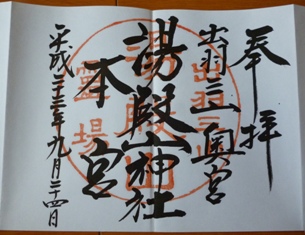 奉拝
出羽三山奥宮
湯殿山神社
本宮
平成二十三年九月二十四日
出羽三山
湯殿山
霊場